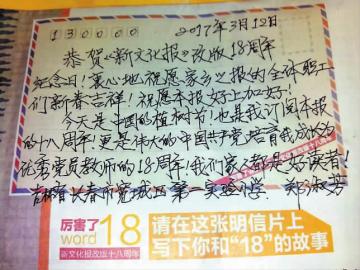 130000
2017年3月12日
恭贺《新文化报》改版18周年
纪念日！衷心地祝愿家乡报的全体职工
们新春吉祥！祝愿本报好上加好！
今天是中国的植树节！也是我订阅本报
的十八周年！更是伟大的中国共产党培育我成为
优秀党员教师的18周年！我们家人都是好读者！
吉林省长春市宽城区第一实验小学 郑淑芳
厉害了
word 18
新文化报改版十八周年
请在这张明信片上
写下你和“18”的故事